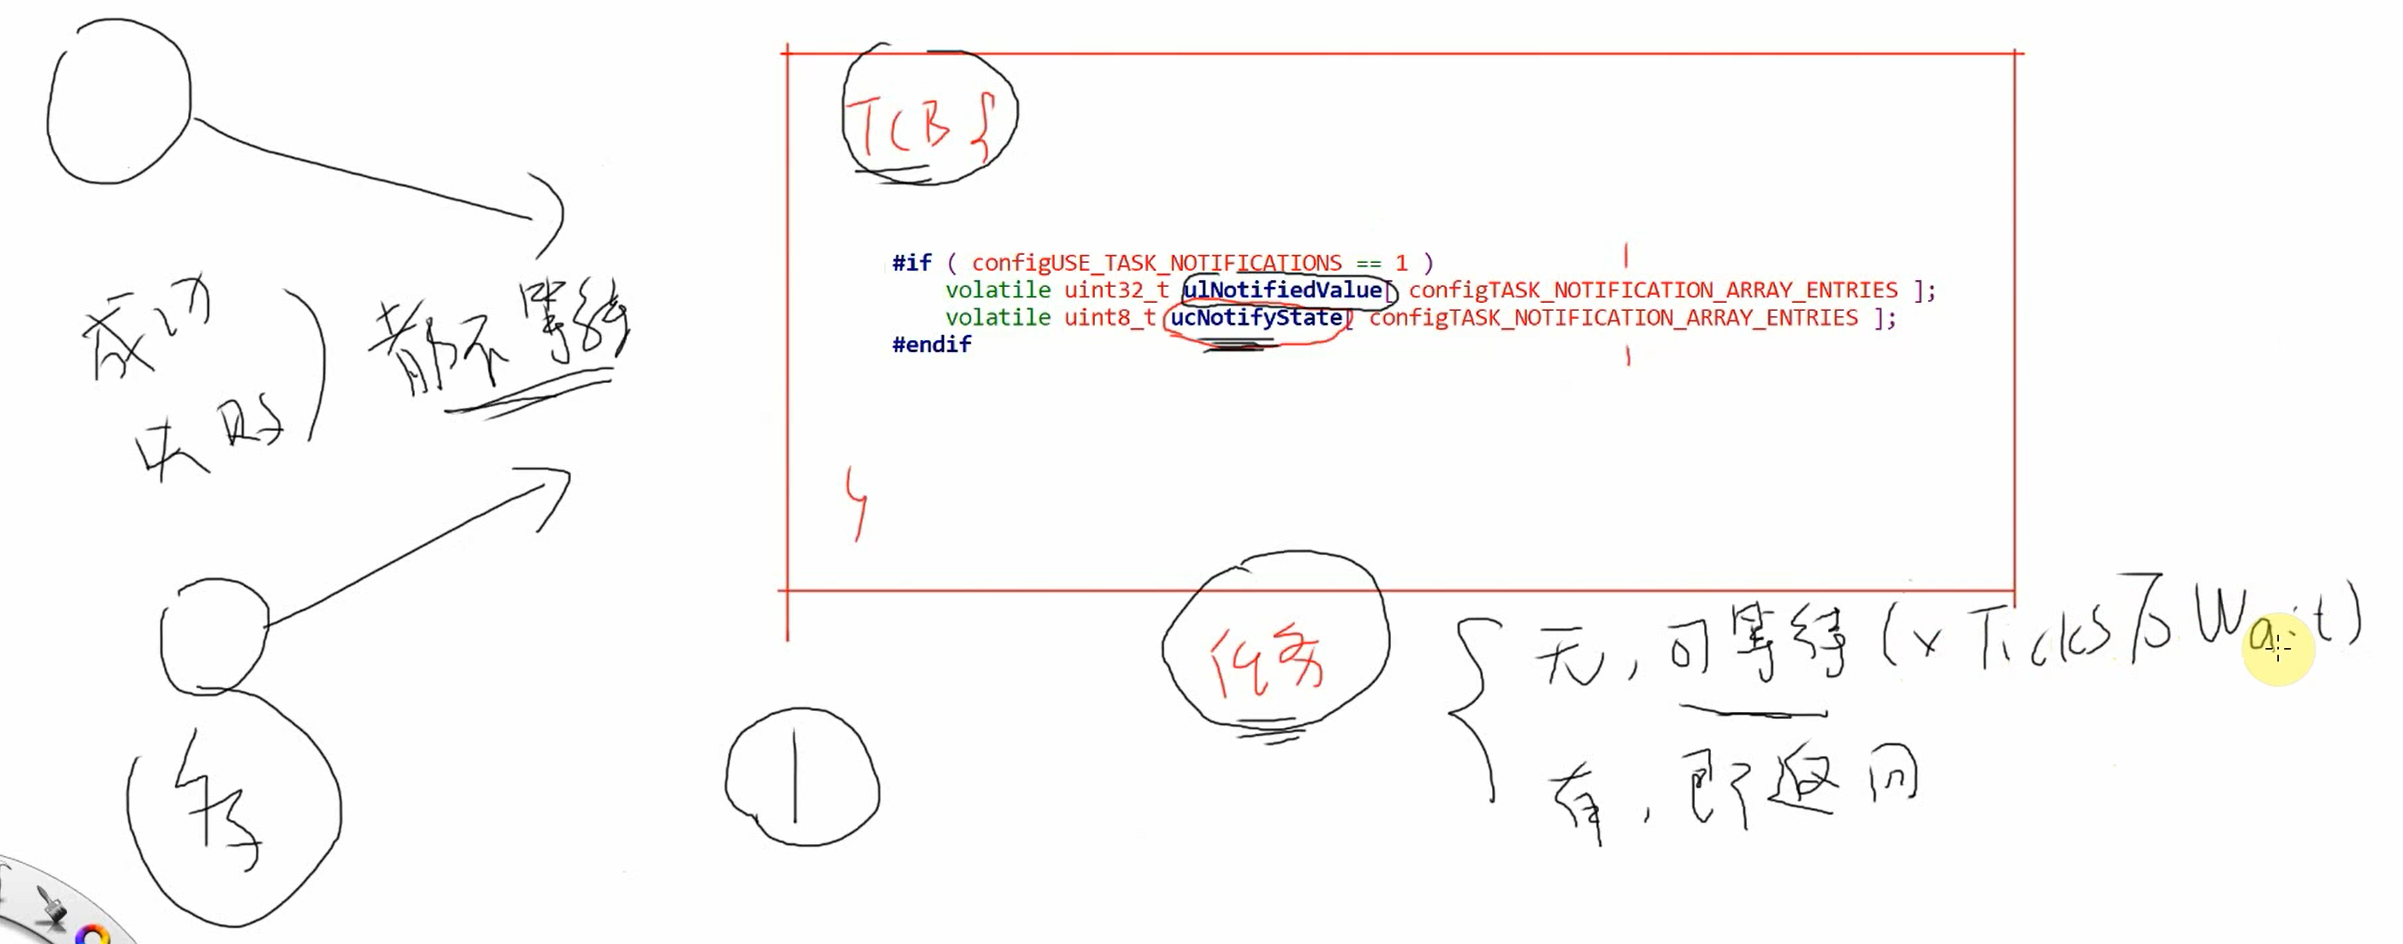 TCB {
#if ( configUSE_TASK_NOTIFICATIONS == 1 )
volatile uint32_t ulNotifiedValue[ configTASK_NOTIFICATION_ARRAY_ENTRIES ];
volatile uint8_t ucNotifyState[ configTASK_NOTIFICATION_ARRAY_ENTRIES ];
#endif
成功
失败
都不等待
}
任务
无，可等待(xTicksToWait)
有，即返回
写
1